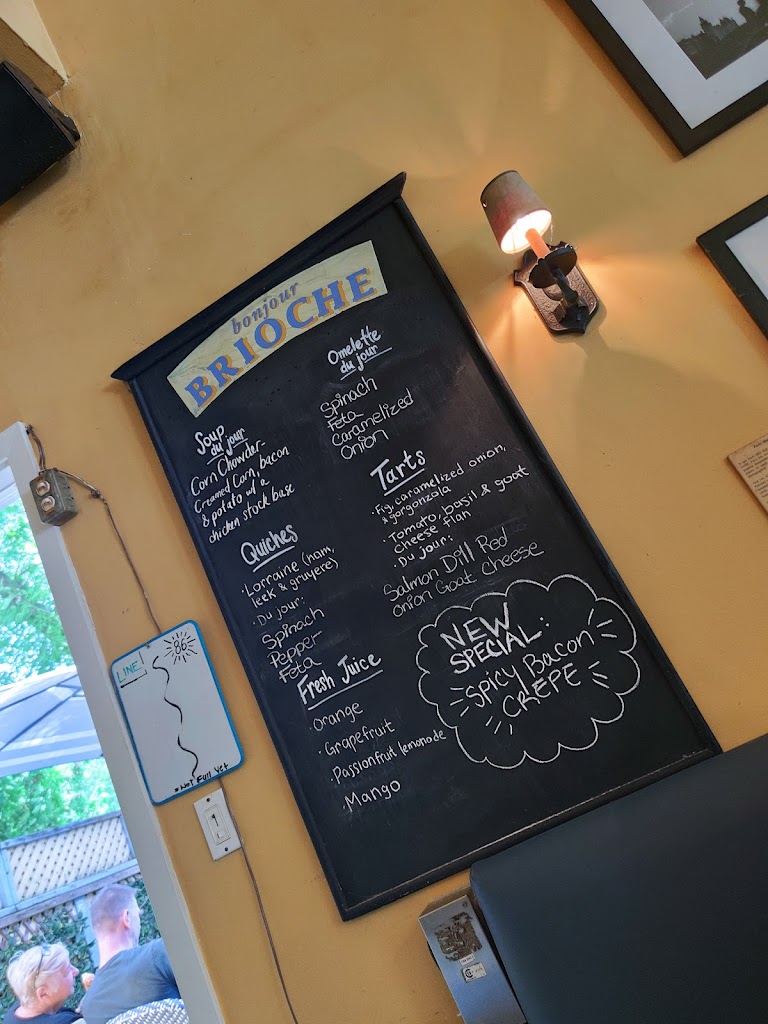 bonjour
BRIOCHE
Soup
du jour
Corn Chowder-
Creamed Corn, bacon
& potato w/ a
chicken stock base
Quiches
· Lorraine (ham,
leek & gruyere)
· Du jour:
Spinach
Pepper
Feta
Fresh Juice
· Orange
· Grapefruit
· Passionfruit lemonade
· Mango
Omelette
du jour
Spinach
Feta
Caramelized
Onion
Tarts
· Fig, caramelized onion,
& gorgonzola
· Tomato, basil & goat
cheese flan
· Du jour:
Salmon Dill Red
onion Goat cheese
NEW
SPECIAL:
Spicy Bacon
CREPE
LINE!
86
*Not Full Yet